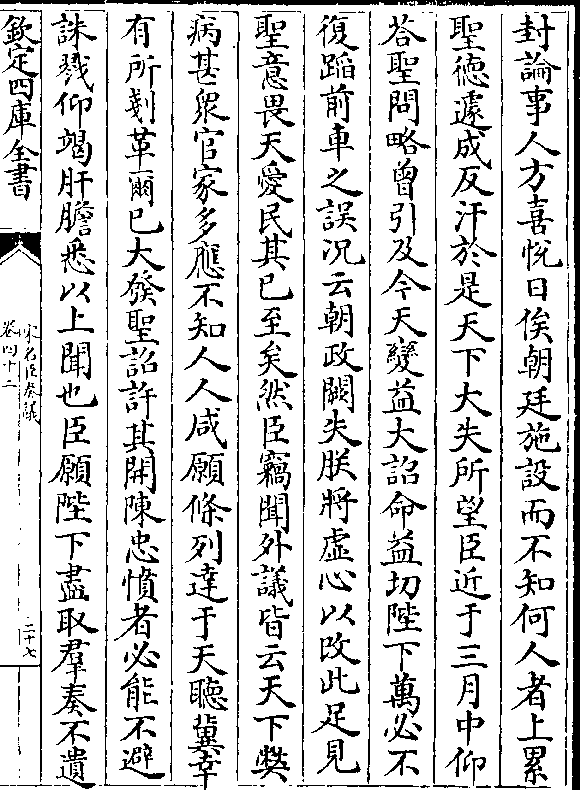 封論事人方喜悅日俟朝廷施設而不知何人者上累
聖德遽成反汗於是天下大失所望臣近于三月中仰
荅聖問略曾引及今天變益大詔命益切陛下萬必不
復蹈前車之誤況云朝政闕失朕將虛心以改此足見
聖意畏天愛民其已至矣然臣竊聞外議皆云天下獘
病甚衆官家多應不知人人咸願條列達于天聽冀幸
有所剗革爾已大發聖詔許其開陳忠憤者必能不避
誅戮仰竭肝膽悉以上聞也臣願陛下盡取羣奏不遺
欽定四庫全書
宋名臣奏議
卷四十二
二十七